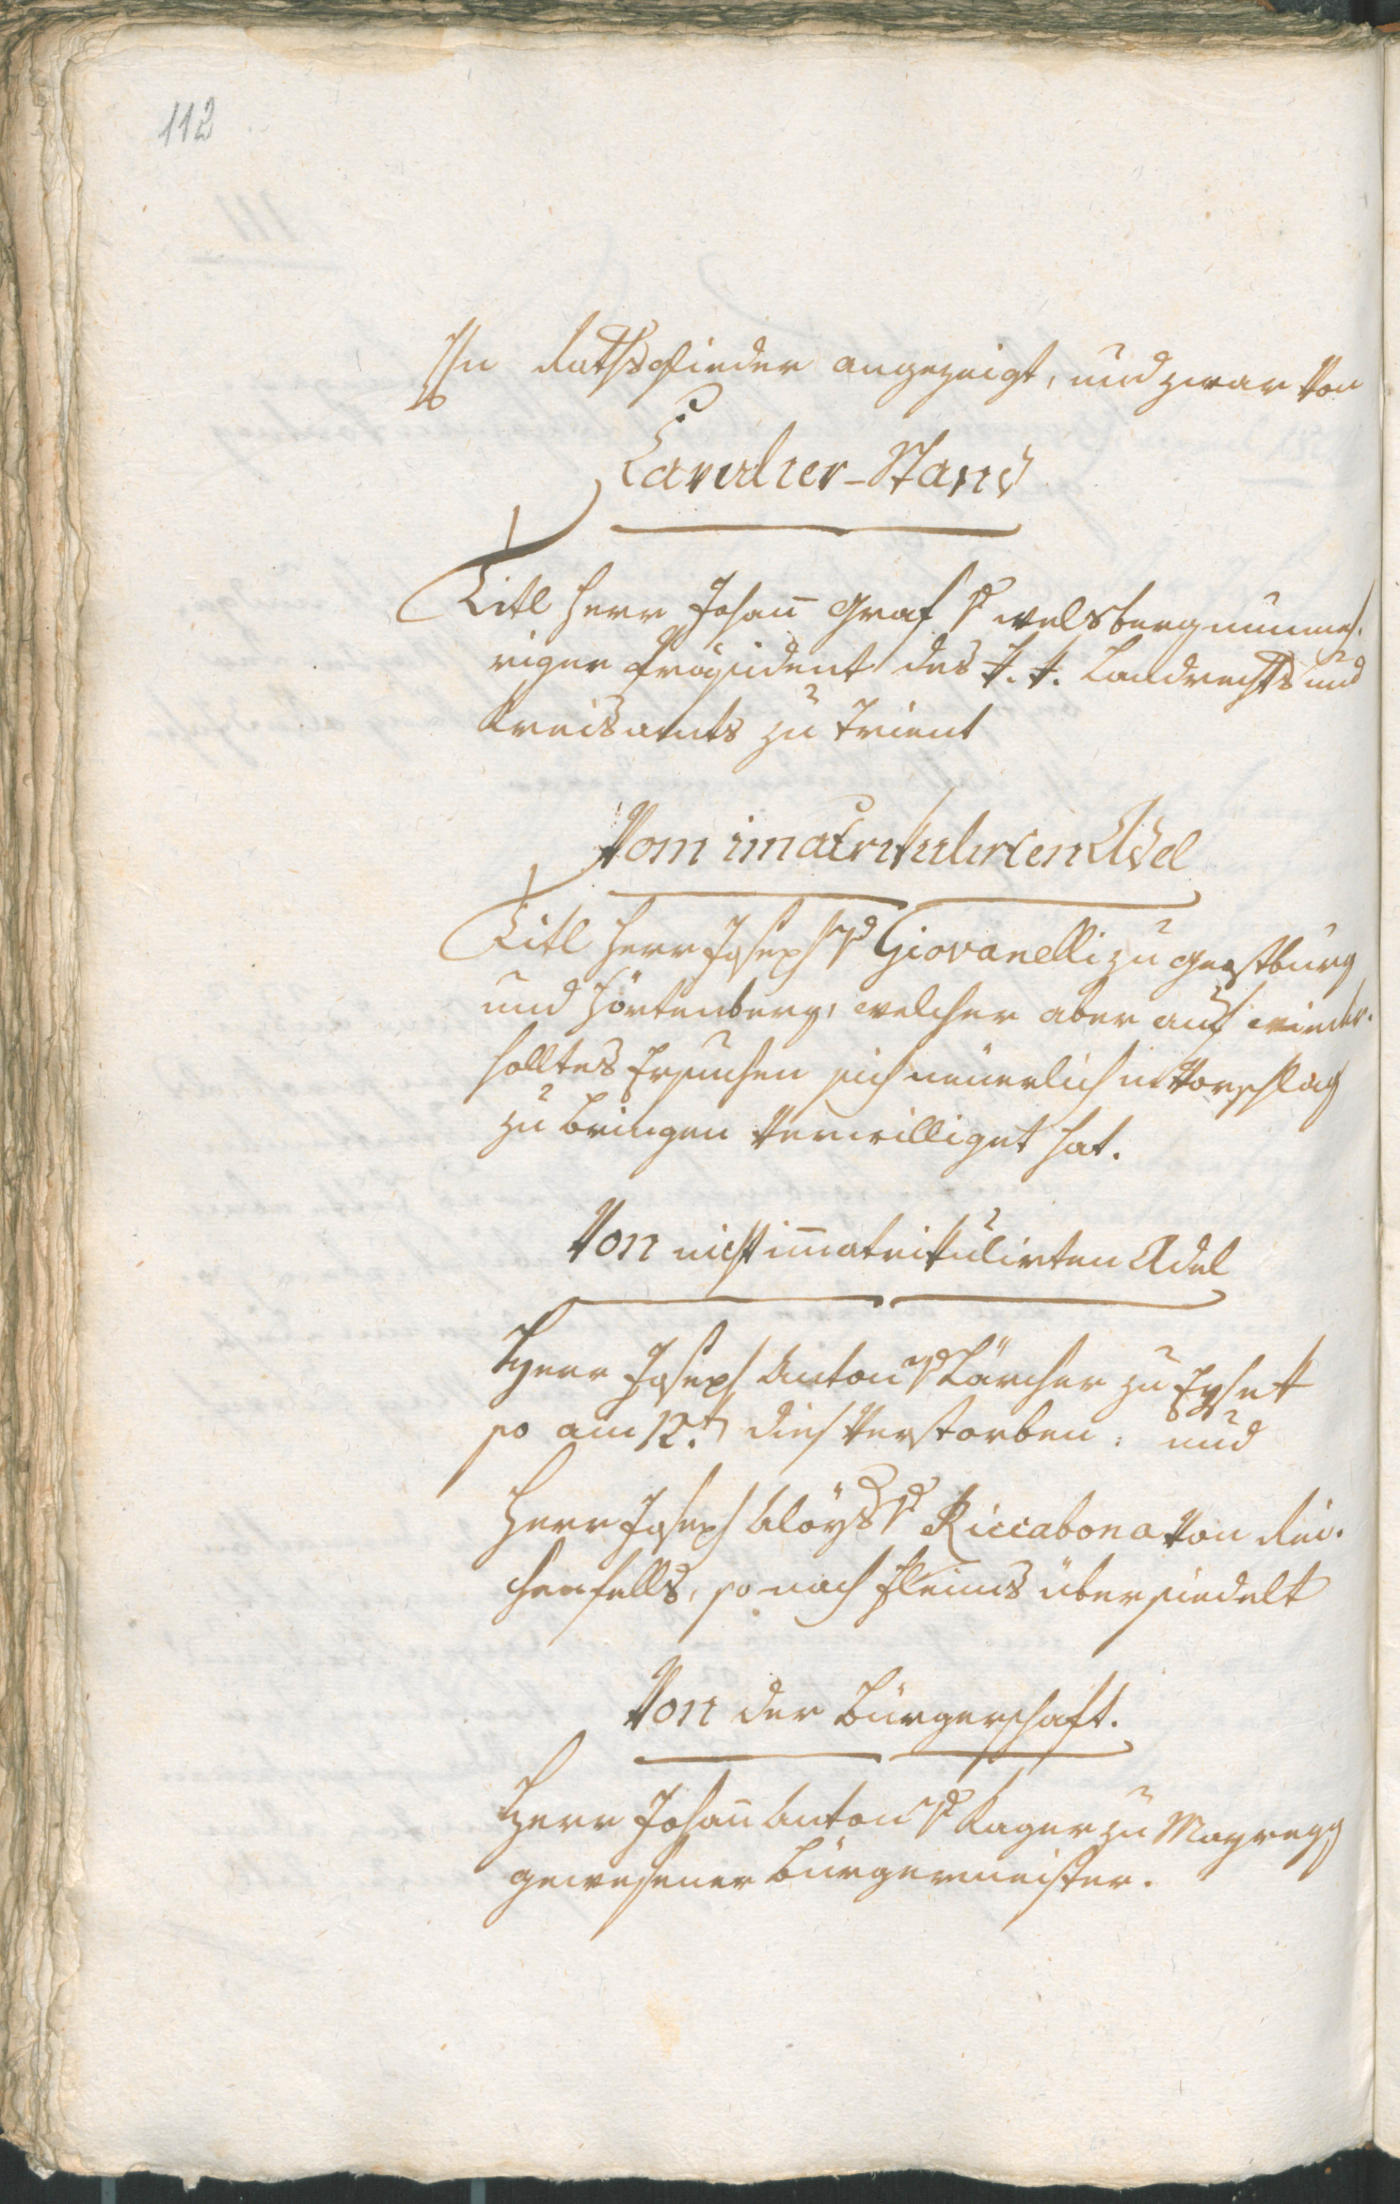 112
Hn Rathsglieder angezeigt, und zwar von
Cavalier-Stand
Titl Herr Johan̄ Graf v Welsberg nunmeh-
riger Präsident des K. K. Landrechts und
Kreisamts zu Trient
Vom imatrikulirten Adel
Titl Herr Joseph v Giovanelli zu Gerstburg
und Hörtenberg, welcher aber auf wieder-
holltes Ersuchen sich neuerlich in Vorschlag
zu bringen verwilliget hat.
Von nicht im̄atrikulirten Adel
Herr Joseph Anton v Lürcher zu
so am 12.t dieß verstorben: und
Herr Joseph Aloÿs v Riccabona von Rei-
chenfells, so nach Fleims übersiedelt
Von der Bürgerschaft.
Herr Johan̄ Anton v Kager zu Mayregg
gewesener Bürgermeister.